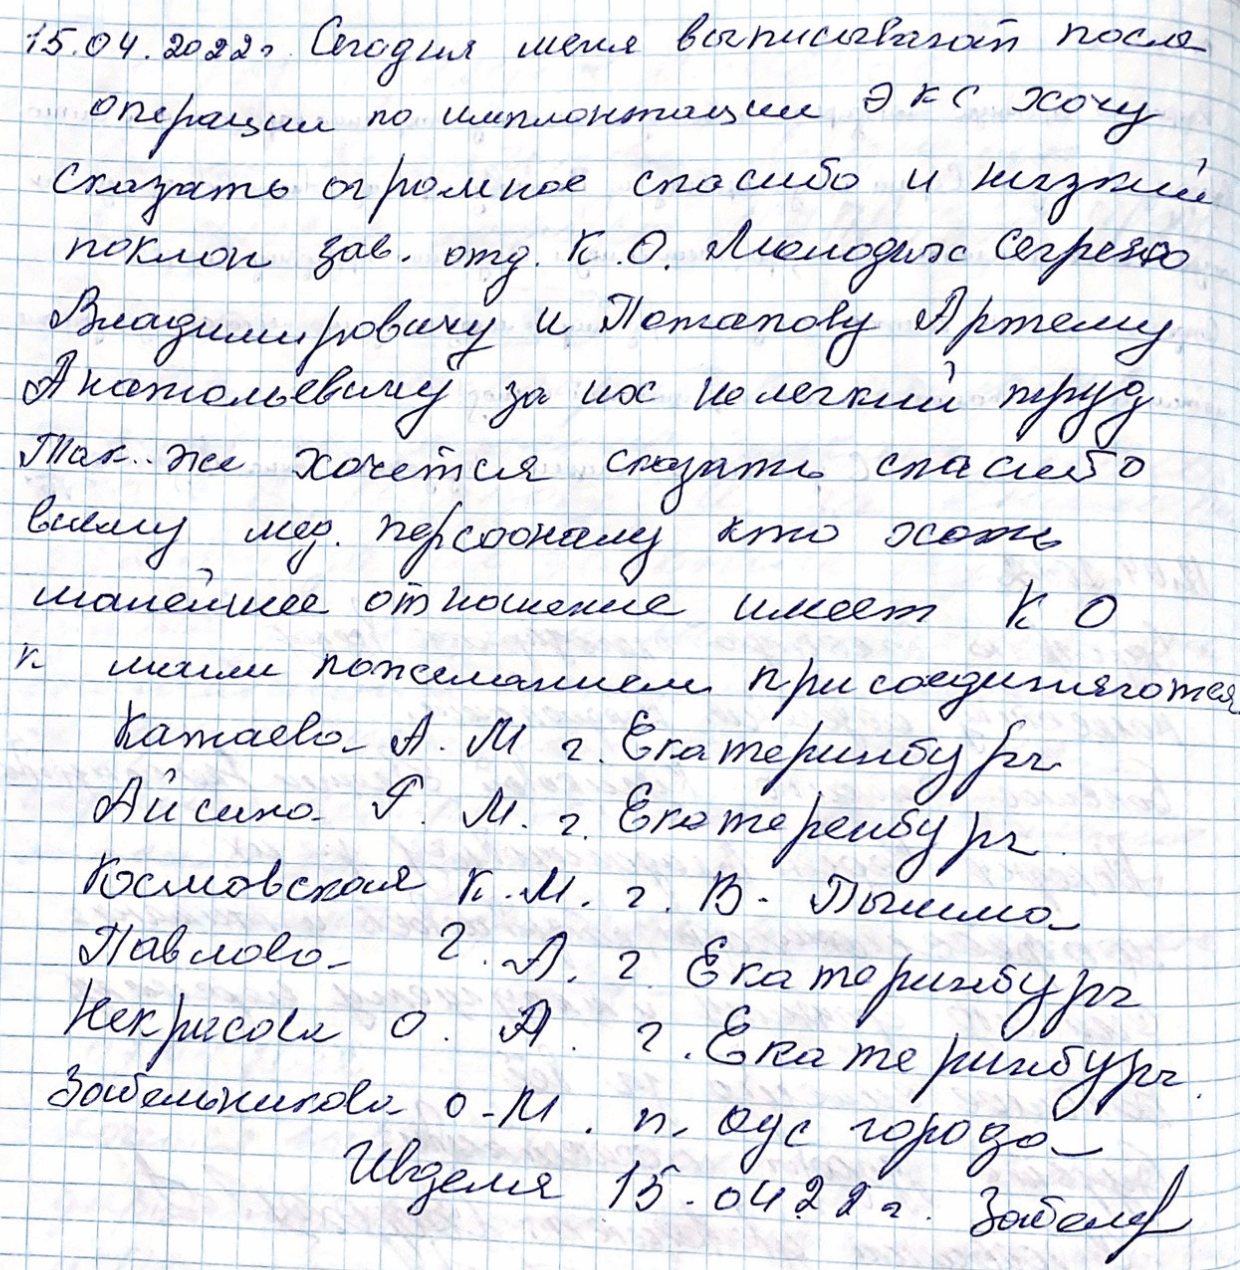 15.04.2022г. Сегодня меня выписывают после
операции по имплонтации ЭКС хочу
сказать огромное спасибо и низкий
поклон зав. отд. К.О. Молодых Сергею
Владимировичу и Потапову Артему
Анатольевичу за их нелегкий труд
Так же хочется сказать спасибо
всему мед. персооналу кто хоть
малейшее отношение имеет К О
к моим пожеланием присоединяются
Катаева А. М г. Екатеринбург
Айсина Г. М. г. Екатеренбург.
Космовская К.М. г. В-Пышма
Павлова Г. А. г Екатеринбург
Некрасова О. А. г. Екатеринбург.
Забельникова О-М. п. Оус города
Ивделя 15.04 22г. Забель